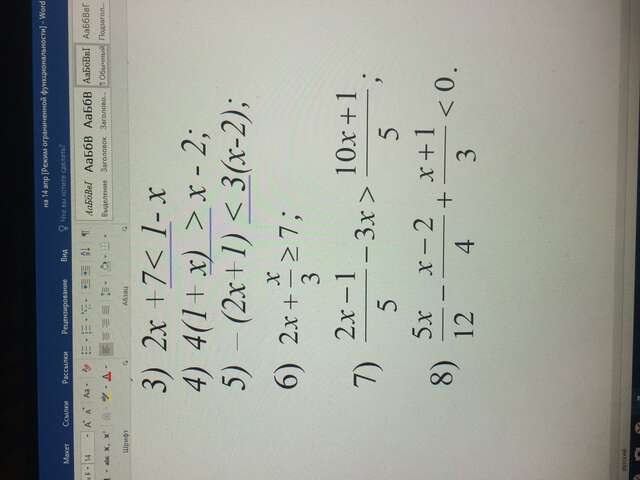 на 14 апр [Режим ограниченной функциональности] - Word
Макет Ссылки Рассылки Рецензирование Вид Что вы хотите сделать?
14 Aa
abc x, x²
АаБбВвГ АаБбВ АаБбВ АаБбВвГ АаБбВвГ
Выделение Заголовок Заголово... ¶ Обычный Подзагол...
Шрифт Абзац
3) 2x +7< 1- x
4) 4(1+ x) > x - 2;
5) –(2x+1) < 3(x-2);
6) 2x + x/3 ≥ 7;
7) (2x − 1)/5 − 3x > (10x + 1)/5;
8) 5x/12 − (x − 2)/4 + (x + 1)/3 < 0.
русский